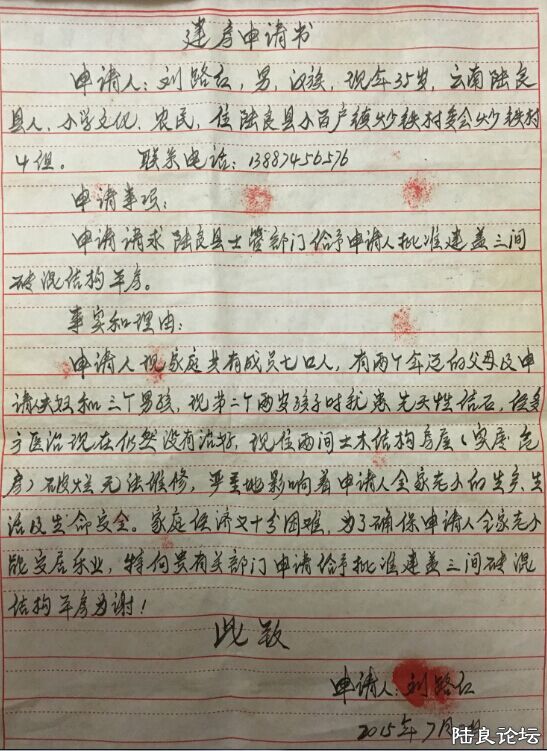 建房申请书
申请人：刘路红，男，汉族，现年35岁，云南陆良
县人、小学文化、农民，住陆良县小百户镇炒铁村委会炒铁村
4组。 联系电话：13887456576
申请事项：
申请请求陆良县土管部门给予申请人批准建盖三间
砖混结构平房。
事实和理由：
申请人现家庭共有成员七口人，有两个年迈的父母及申
请夫奴和三个男孩，现第二个两岁孩子时就患先天性结石，经多
方医治现在仍然没有治好，现住两间土木结构房屋（实属危
房）破烂无法维修，严重地影响着申请人全家老小的生产、生
活及生命安全。家庭经济又十分困难，为了确保申请人全家老小
能安居乐业，特向贵有关部门申请给予批准建盖三间砖混
结构平房为谢！
此致
申请人：刘路红
2015年7月
陆良论坛